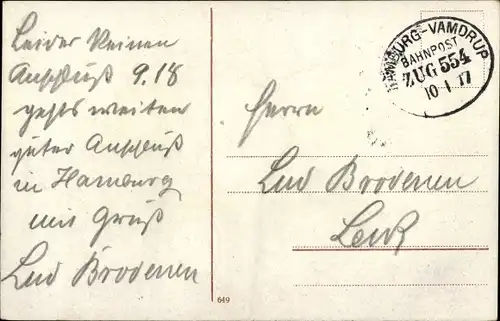 Leider Keinen
Anschluß 9.18
gehts weiter
guter Anschluß
in Hamburg
mit Gruß
Lud Brodersen
HAMBURG-VAMDRUP
BAHNPOST
ZUG 554
10 1 17
Herrn
Lud Brodersen
Leck
649